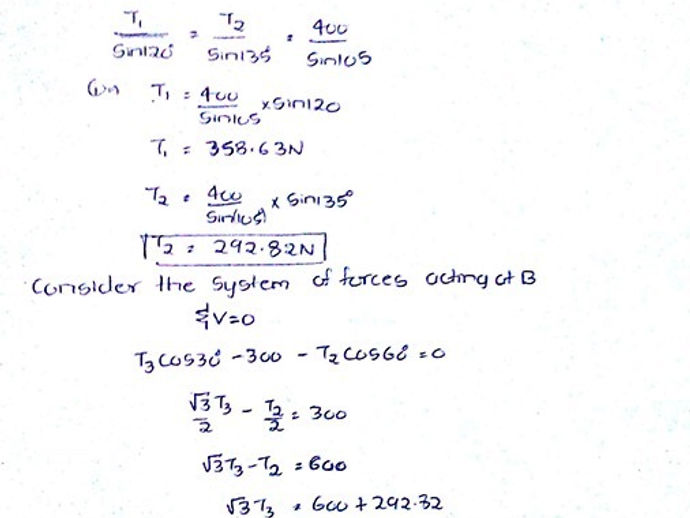 T₁/Sin120° = T₂/Sin135° = 400/Sin105
T₁ = 400/Sin105 × Sin120
T₁ = 358.63N
T₂ = 400/Sin105 × Sin135°
T₂ = 292.82N
Consider the System of forces acting at B
ΣV=0
T₃ Cos30° - 300 - T₂ Cos60° = 0
√3T₃/2 - T₂/2 = 300
√3T₃ - T₂ = 600
√3T₃ = 600 + 292.32